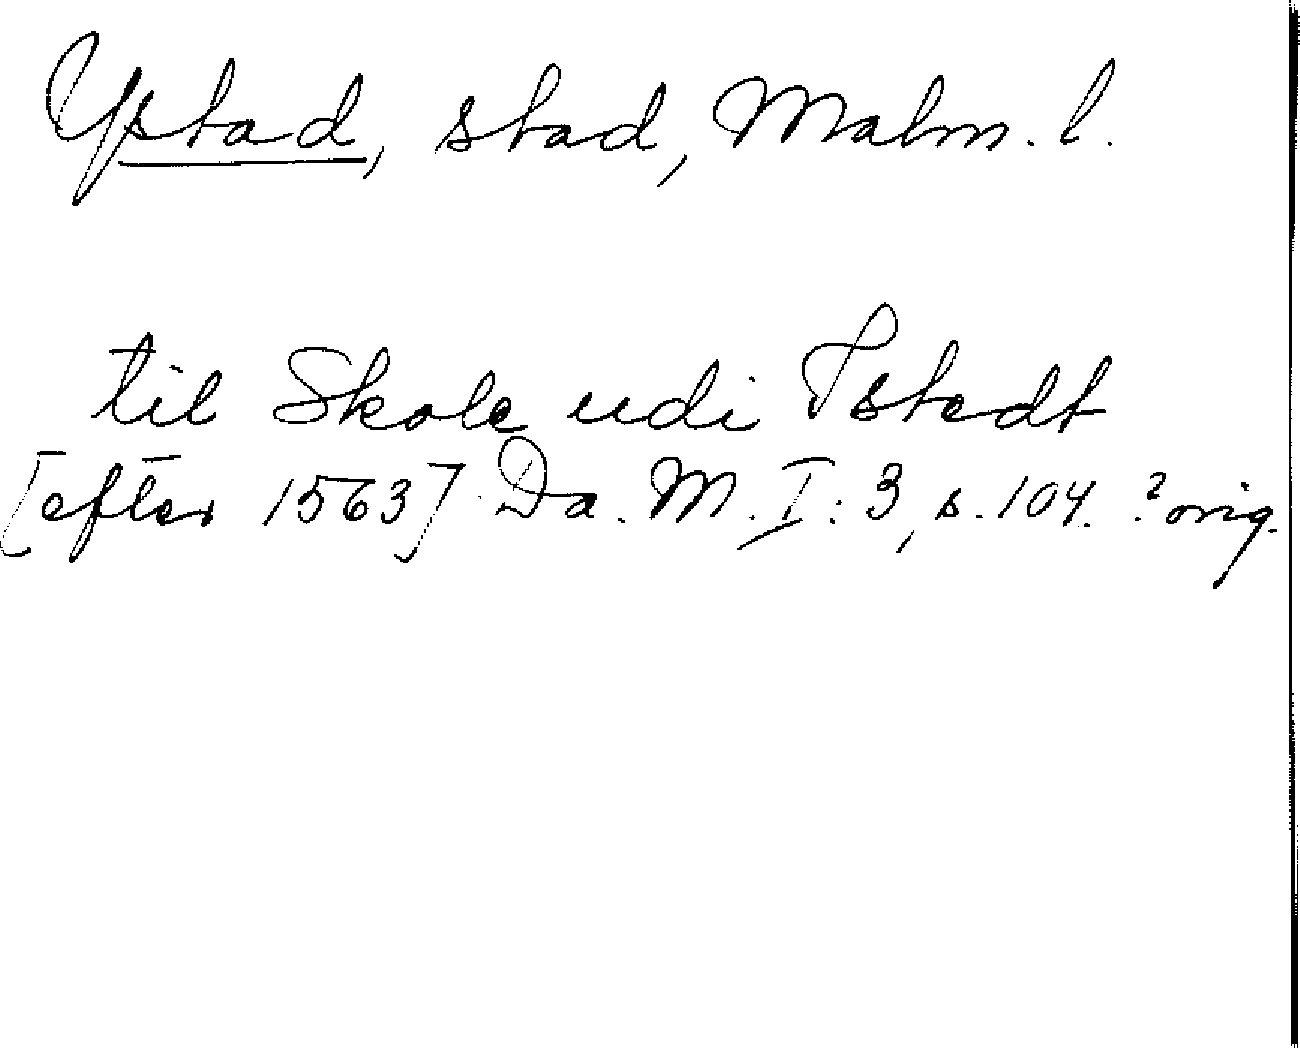 Ystad, stad, Malm. l.
til Skole udi Istedt
[efter 1563] Da. M. I: 3, s. 104. ? orig.